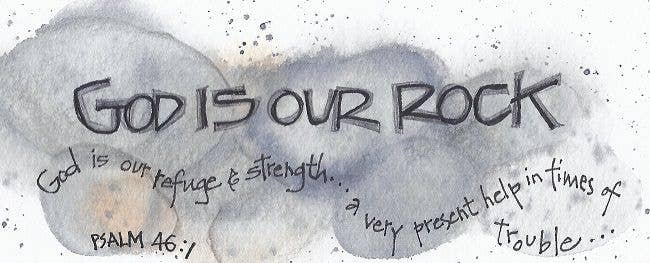 GOD IS OUR ROCK
God is our refuge & strength...
a very present help in times of
trouble...
PSALM 46:1